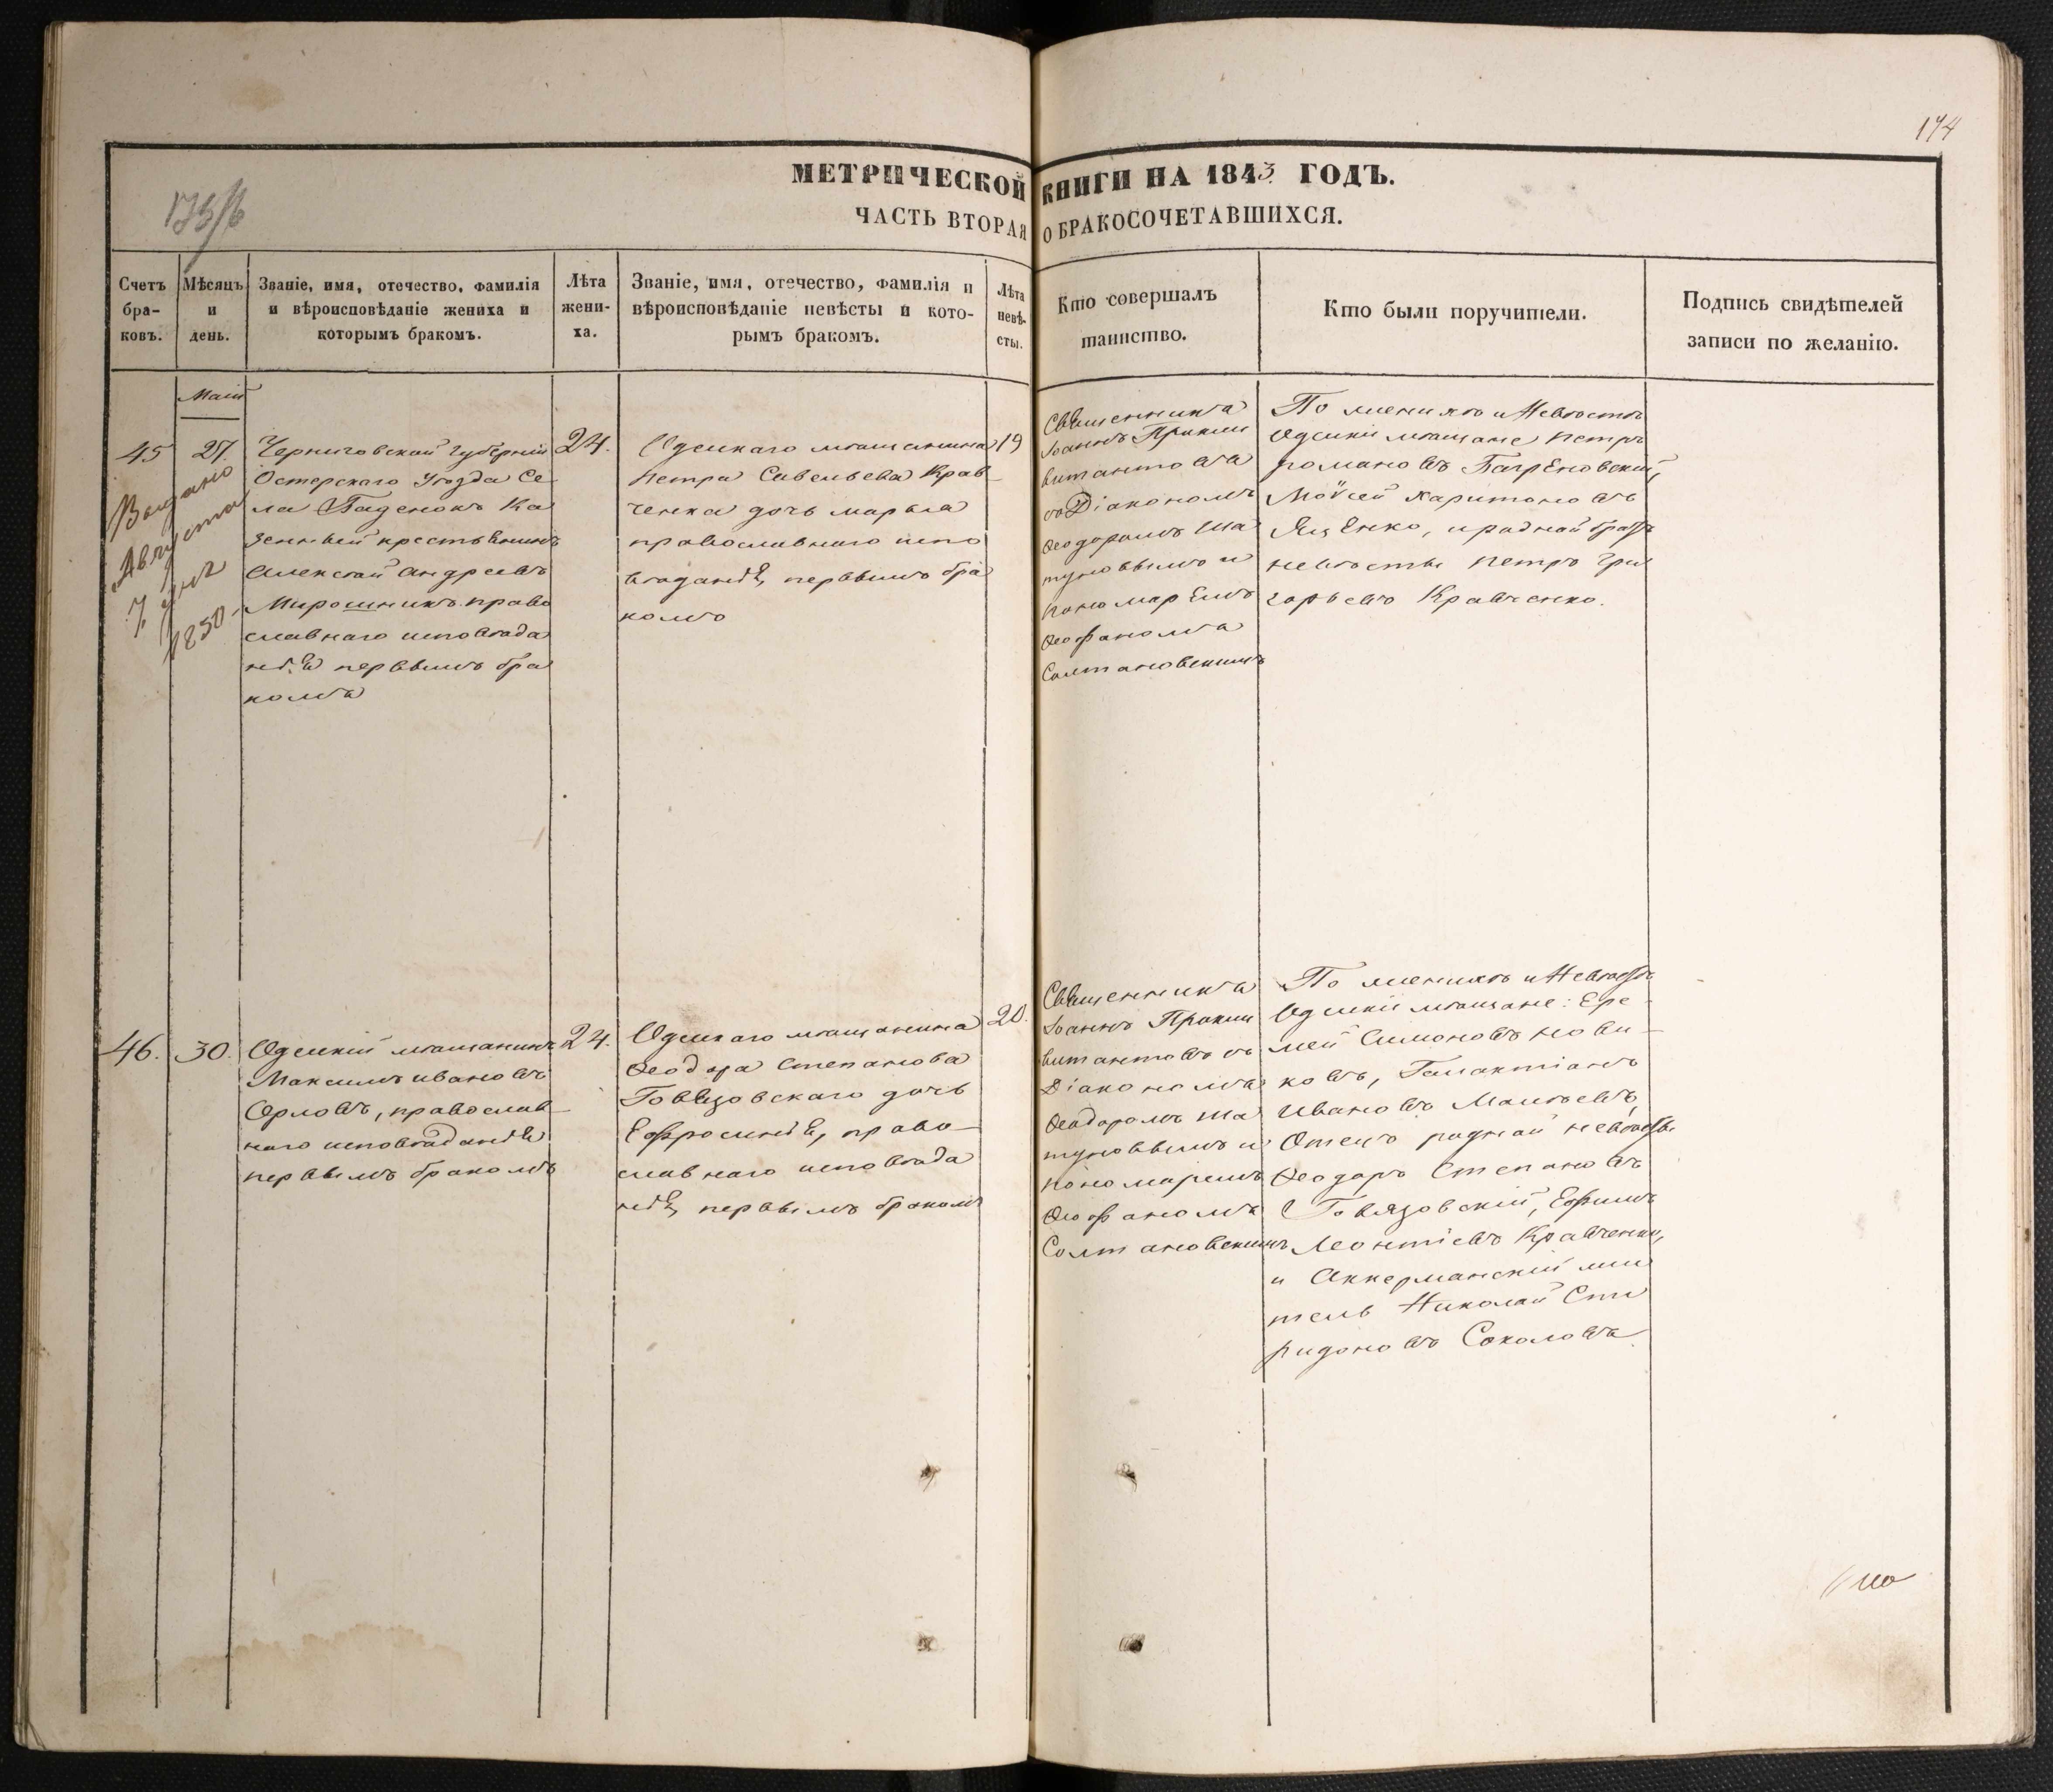 174
МЕТРИЧЕСКОЙ КНИГИ НА 1843 ГОДЪ.
ЧАСТЬ ВТОРАЯ О БРАКОСОЧЕТАВШИХСЯ.
Счетъ
бра-
ковъ.
Мѣсяцъ
и
день.
Званіе, имя, отечество, фамилія
и вѣроисповѣданіе жениха и
которымъ бракомъ.
Лѣта
жени-
ха.
Званіе, имя, отечество, фамилія и
вѣроисповѣданіе невѣсты и кото-
рымъ бракомъ.
Лѣта
невѣ-
сты.
Кто совершалъ
таинство.
Кто были поручители.
Подпись свидѣтелей
записи по желанію.
Маій
45
27.
Выдано
Августа
7 дня
1850
Черниговской Губерніи
Остерскаго Уѣзда Се
ла Гаденокъ Ка
зенный крестьянинъ
Алексѣй Андреевъ
Мирошникъ право
славнаго исповѣда
нія первымъ бра
комъ
24.
Одескаго мѣщанина
Петра Савельева Крав
ченка дочь Марья
православнаго испо
вѣданія, первымъ бра
комъ
19
Священникъ
Іоаннъ Прокши
витантовъ
съ Діакономъ
Ѳеодоромъ Ша
туновымъ и
пономаремъ
Ѳеофаномъ
Солтановскимъ
По женихѣ и Невѣстѣ
Одескіи мѣщане Петръ
Романовъ Багряновскій,
Моѵсей Харитоновъ
Яценко, и родной братъ
невѣсты Петръ Гри
горьевъ Кравченко.
46.
30.
Одескій мѣщанинъ
Максимъ Ивановъ
Орловъ, православ
наго исповѣданія
первымъ бракомъ
24.
Одескаго мѣщанина
Ѳеодора Степанова
Говязовскаго дочь
Ефросинія, право-
славнаго исповѣда
нія, первымъ бракомъ
20.
Священникъ
Іоаннъ Прокши
витантовъ съ
Діакономъ
Ѳеодоромъ Ша
туновымъ и
пономаремъ
Ѳеофаномъ
Солтановскимъ
По женихѣ и Невѣстѣ
Одескіи мѣщане: Ере-
мей Симоновъ Нови-
ковъ, Галактіонъ
Ивановъ
Отецъ родной невѣсты
Ѳеодоръ Степановъ
Говязовскій, Ефимъ
Леонтіевъ Кравченко,
и Аккерманскій жи
тель Николай Спи
ридоновъ Соколовъ